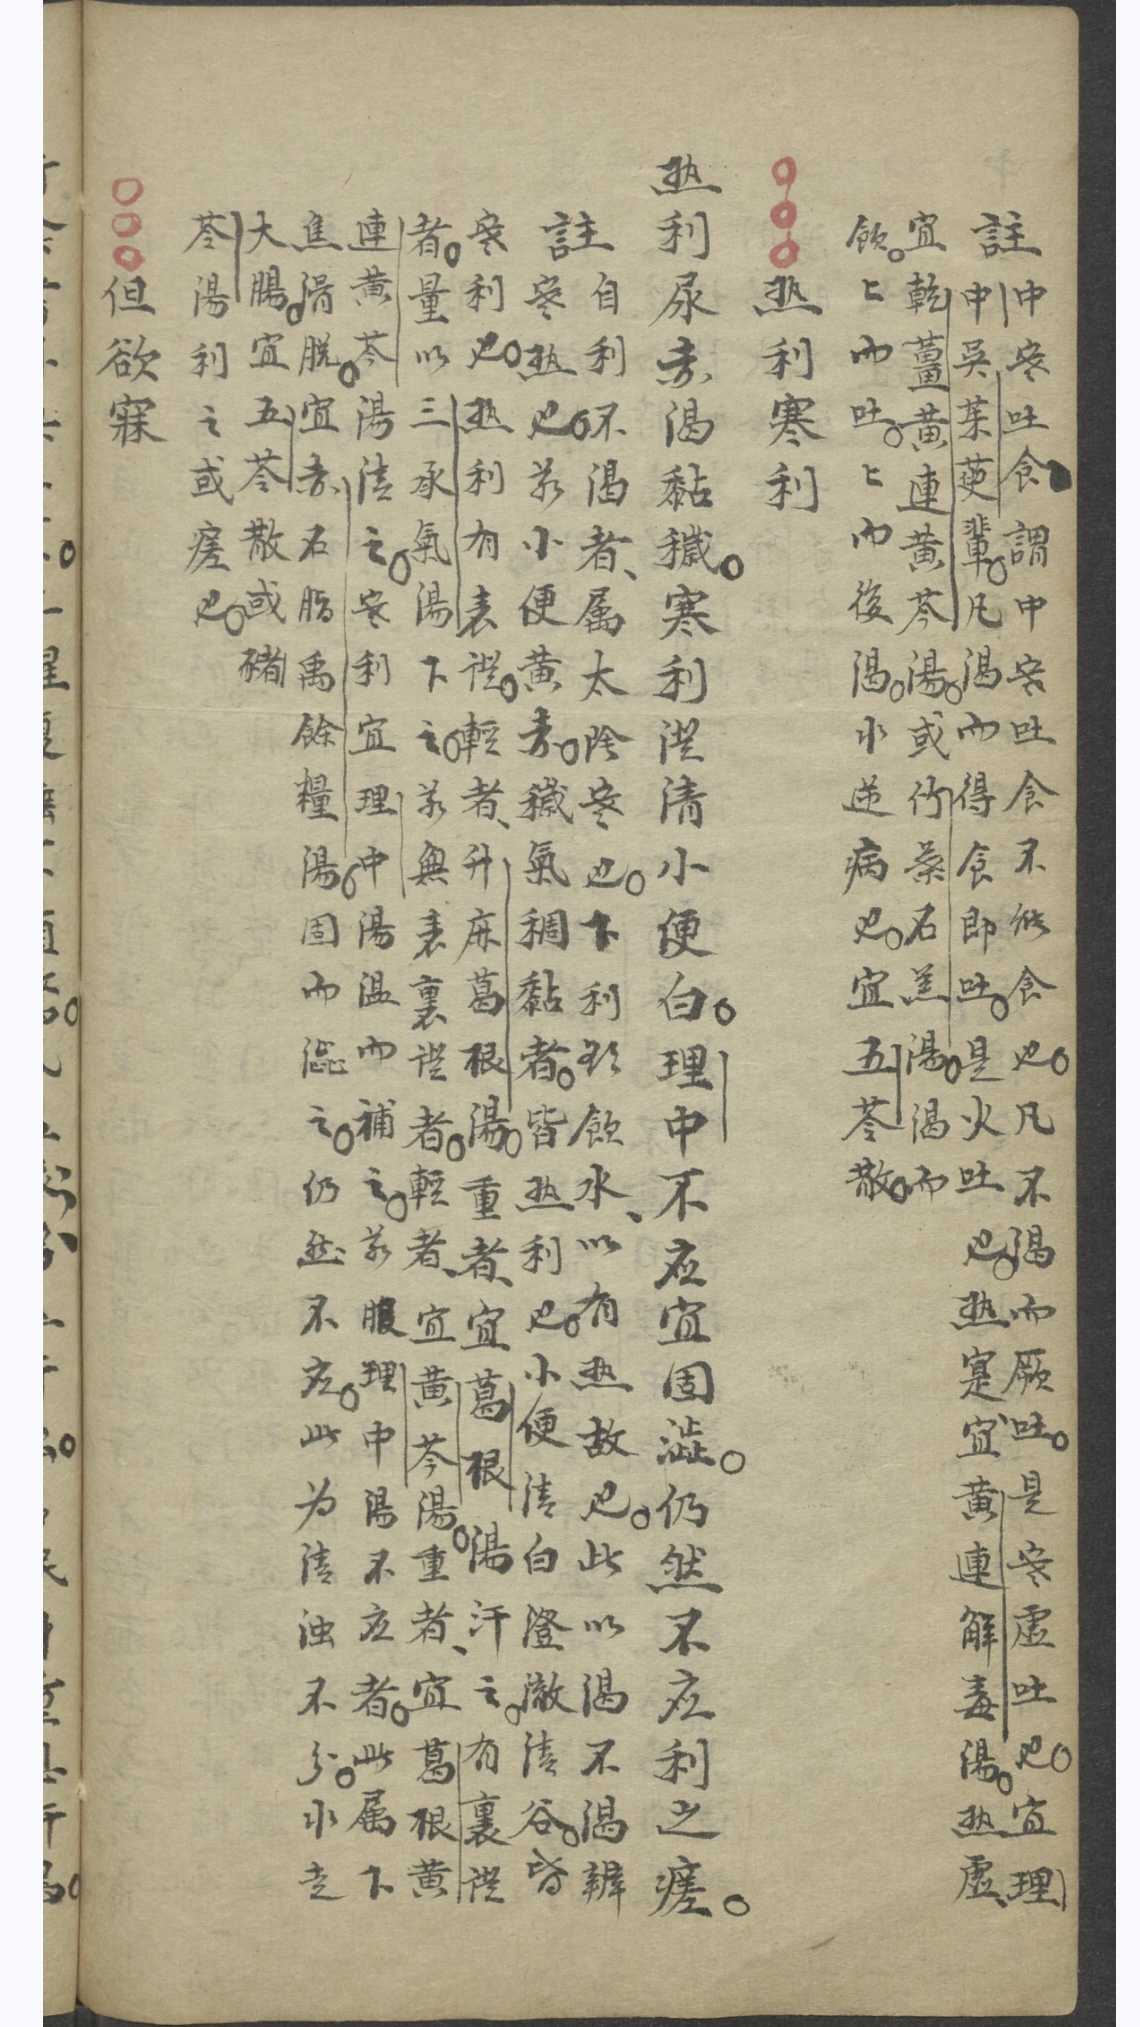 註中寒吐食謂中寒吐食不能食也。凡不渴而厥吐。是寒虛吐也。宜理
中吳茱萸輩。凡渴而得食即吐。是火吐也。热寔宜黃連解毒湯。热虛、
宜乾薑黃連黃芩湯。或竹葉石羔湯。渴而
飲。〻而吐。〻而後渴。水逆病也。宜五苓散。
○○○热利寒利
热利尿赤渴黏穢。寒利澄清小便白。理中不应宜固澁。仍然不应利之瘥。
註自利不渴者、属太陰寒也。下利欲飲水、以有热故也。此以渴不渴辨
寒热也。若小便黃赤。穢氣稠黏者。皆热利也。小便清白澄澈清谷。皆
寒利也。热利有表証。輕者、升麻葛根湯。重者、宜葛根湯汗之。有裏証
者。量以三承氣湯下之。若無表裏証者。輕者、宜黃芩湯。重者、宜葛根黃
連黃芩湯清之。寒利宜理中湯温而補之。若服理中湯不应者。此属下
焦滑脱。宜赤石脂禹餘糧湯。固而澁之。仍然不应。此为清浊不分。水走
大腸。宜五苓散或豬
苓湯利之或瘥也。
○○○但欲寐